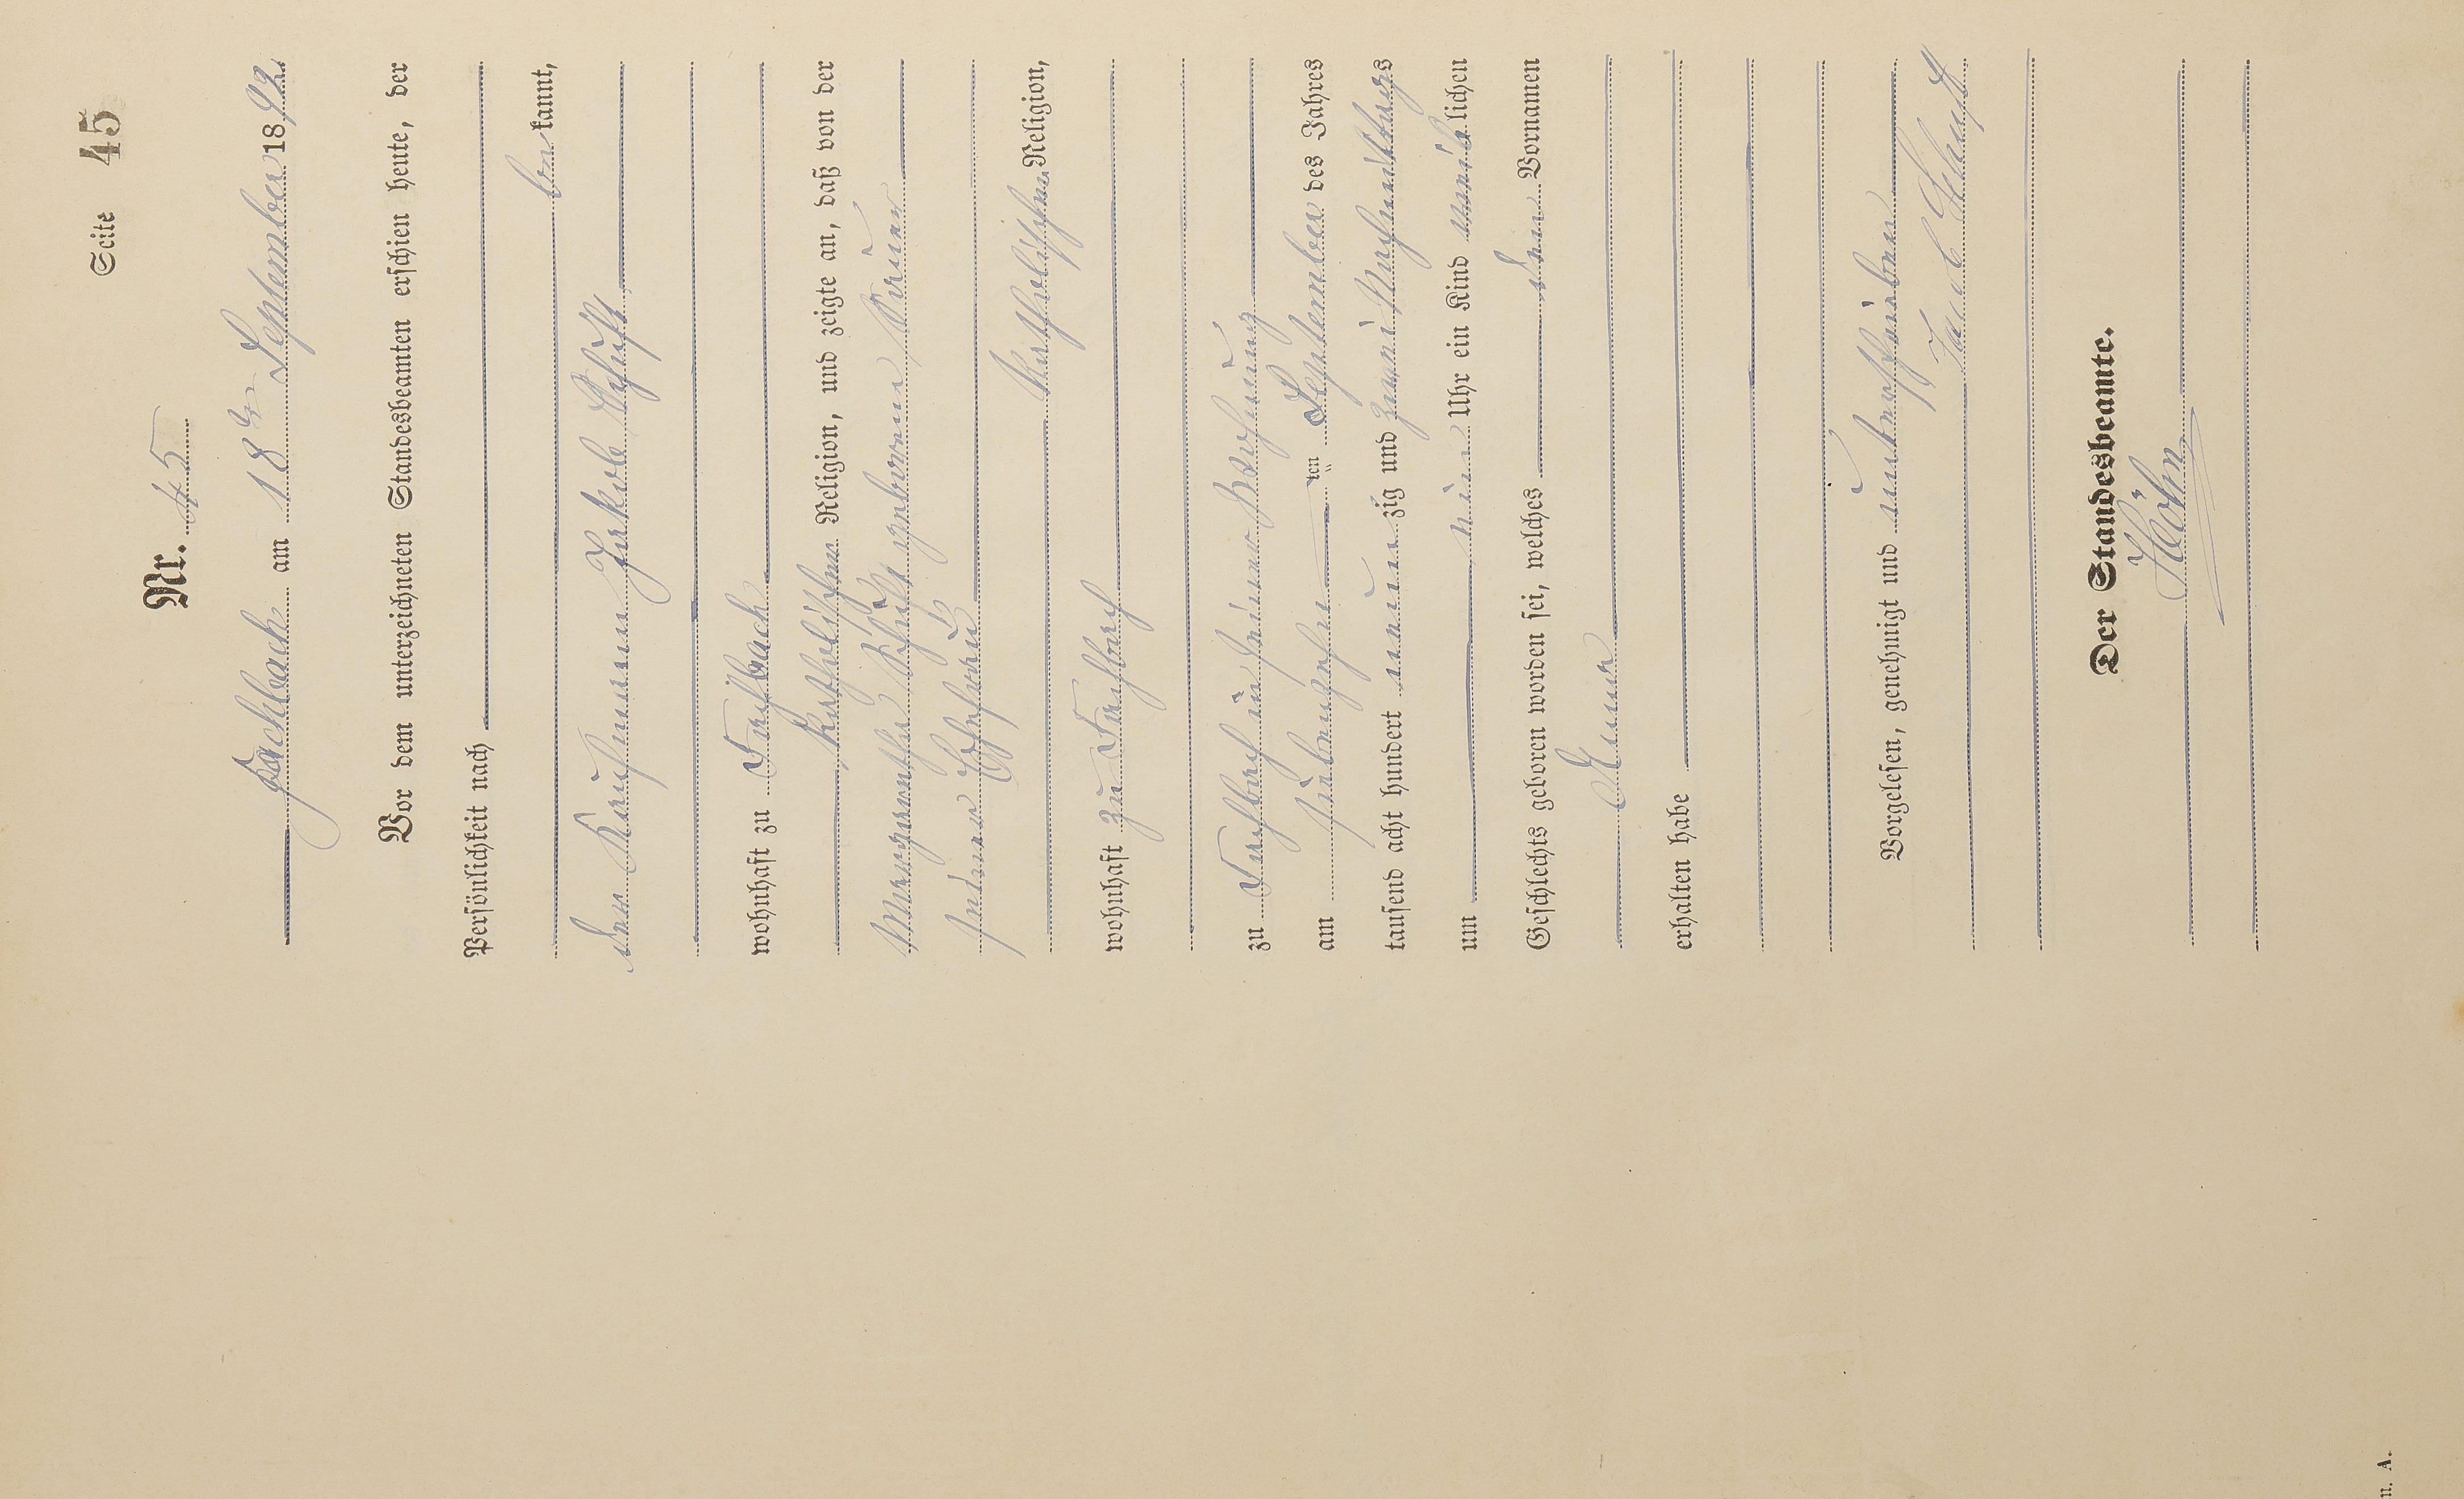 Seite 45
Nr. 45
Fachbach am 18ten September 1892.
Vor dem unterzeichneten Standesbeamten erschien heute, der
Persönlichkeit nach
bekannt,
der Kaufmann Jakob
wohnhaft zu Fachbach
katholischer Religion, und zeigte an, daß von der
Margaretha geborene
seiner Ehefrau
katholischer Religion,
wohnhaft zu Fachbach
zu Fachbach in seiner Wohnung
am siebenzehn ten September des Jahres
tausend acht hundert neun zig und zwei Nachmittags
um ein Uhr ein Kind weiblichen
Geschlechts geboren worden sei, welches den Vornamen
Anna
erhalten habe
Vorgelesen, genehmigt und unterschrieben
Jacob
Der Standesbeamte.
Höhn
n. A.